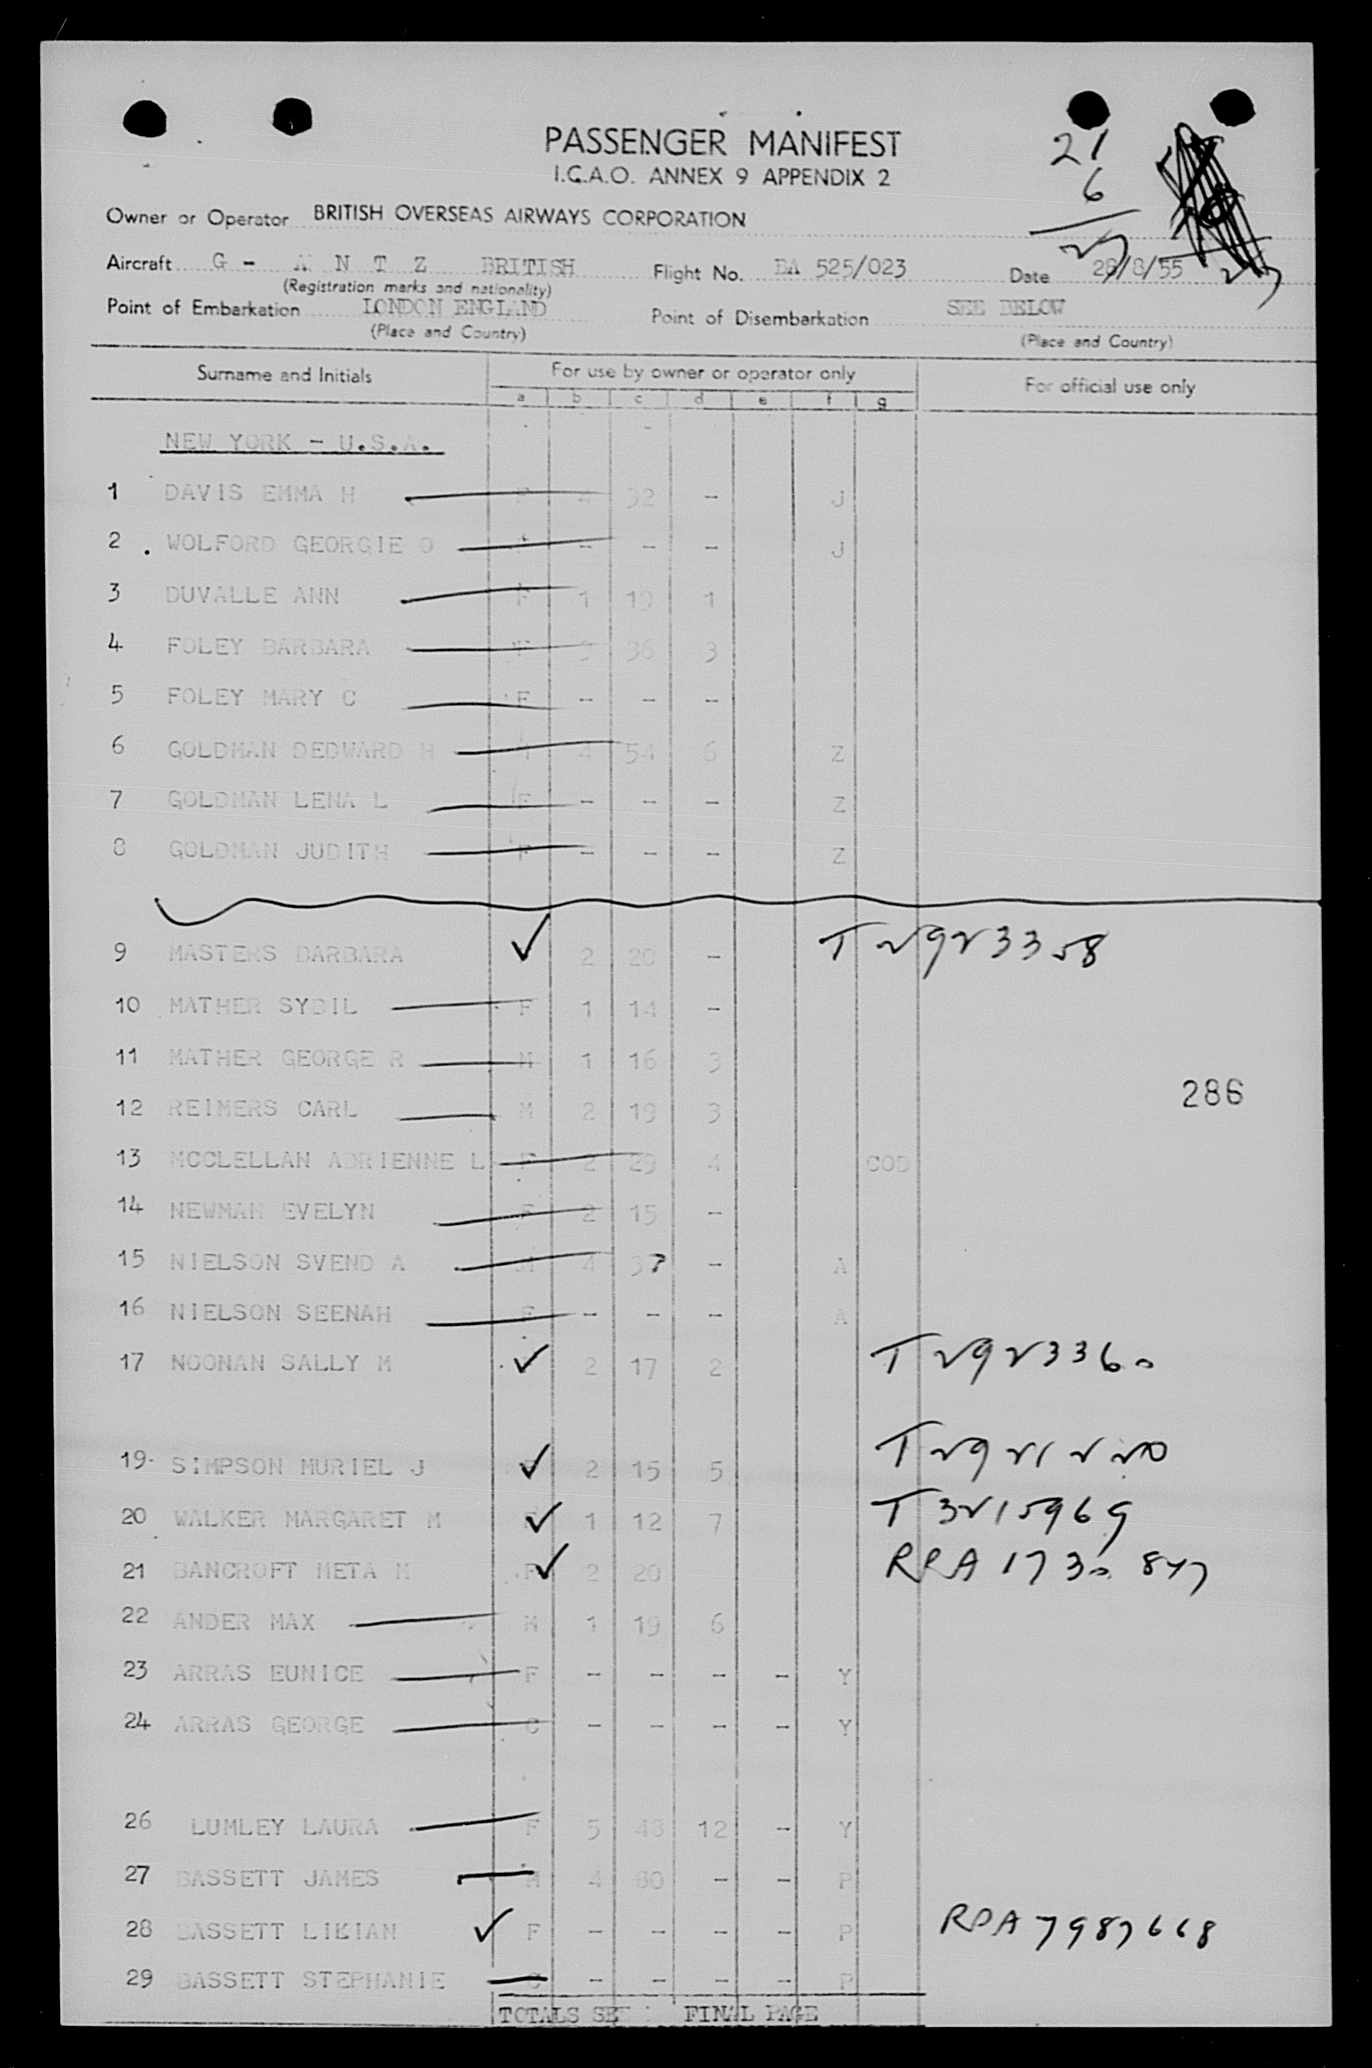 PASSENGER MANIFEST
I.C.A.O. ANNEX 9 APPENDIX 2
21
6
Owner or Operator BRITISH OVERSEAS AIRWAYS CORPORATION
Aircraft G - A N T Z BRITISH Flight No. BA 525/023 Date 28/8/55
(Registration marks and nationality)
Point of Embarkation LONDON ENGLAND Point of Disembarkation SEE BELOW
(Place and Country) (Place and Country)
Surname and Initials For use by owner or operator only For official use only
a b c d e f g
NEW YORK - U.S.A.
1 DAVIS EMMA H F 4 32 - J
2 . WOLFORD GEORGIE O F - - - J
3 DUVALLE ANN F 1 19 1
4 FOLEY BARBARA F 3 36 3
5 FOLEY MARY C F - - -
6 GOLDMAN DEDWARD H M 4 54 6 Z
7 GOLDMAN LENA L F - - - Z
8 GOLDMAN JUDITH F - - - Z
9 MASTERS BARBARA ✓ 2 20 - T 2923358
10 MATHER SYBIL F 1 14 -
11 MATHER GEORGE R M 1 16 3
12 REIMERS CARL M 2 19 3
286
13 MCCLELLAN ADRIENNE L F 2 29 4 COD
14 NEWMAN EVELYN F 2 15 -
15 NIELSON SVEND A M 4 37 - A
16 NIELSON SEENAH F - - - A
17 NOONAN SALLY M ✓ 2 17 2 T 2923360
19 SIMPSON MURIEL J ✓ 2 15 5 T 2921220
20 WALKER MARGARET M ✓ 1 12 7 T 3215969
21 BANCROFT META M F ✓ 2 20 RPA 1730 847
22 ANDER MAX M 1 19 6
23 ARRAS EUNICE F - - - - Y
24 ARRAS GEORGE C - - - - Y
26 LUMLEY LAURA F 5 48 12 - Y
27 BASSETT JAMES M 4 80 - - P
28 BASSETT LILIAN ✓ F - - - - P RPA 7987668
29 BASSETT STEPHANIE C - - - - P
TOTALS SEE FINAL PAGE